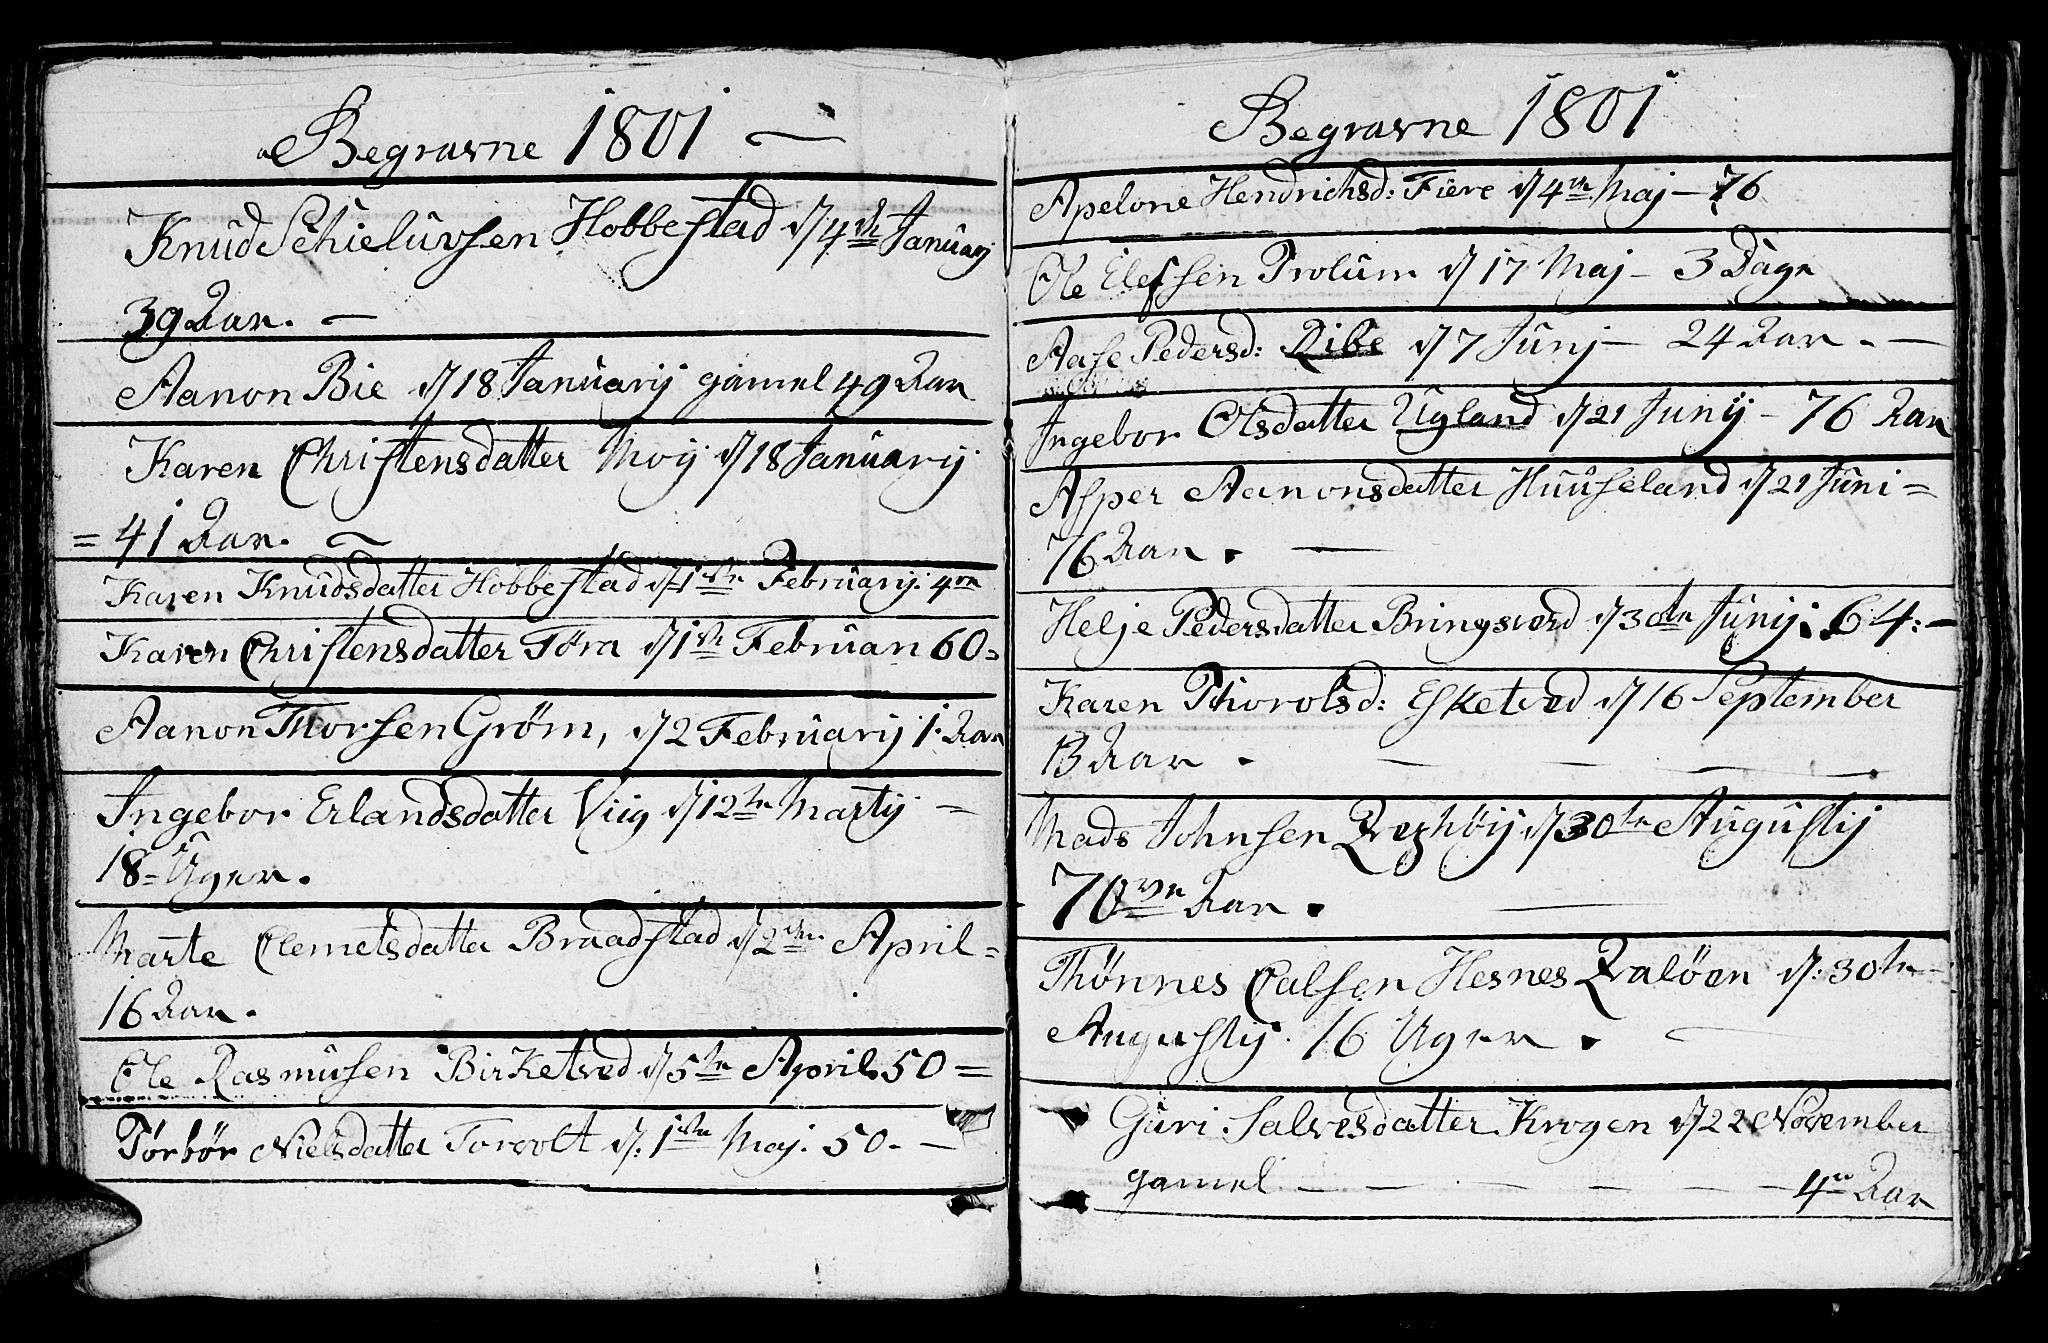 Begravne 1801
Knud Schielursen Hobbestad d 4de Januarj
39 Aar.
Aanon Bie d 18 Januarij gamel 49 Aar
Karen Christensdatter Moÿ d 18 Januarij
= 41 Aar.
Karen Knudsdatter Hobbestad d 1ste Februarij. 4re
Karen Christensdatter Töra d 1ste Februari 60=
Aanon Thorsen Gröm, d 2 Februarij 1. Aar
Ingebor Erlandsdatter Viig d 12te Martij
18= Uger.
Marte Clemetsdatter Braadstad d 2den April=
16 Aar.
Ole Rasmusen Birketved d 5te April. 50=
Törbör Nielsdatter Torvolt d: 1ste Maj. 50.
Begravne 1801
Apelone Hendrichsd: Fiere d 4de Maj - 76
Ole Elefsen Prolum d 17 Maj - 3 Dage
Aase Pedersd: Ribe d 7 Junj - 24 Aar.
Ingebor Olsdatter Ugland d 21 Junij - 76 Aar
Asper Aanonsdatter Huuseland d 21 Juni=
76 Aar.
Helje Pedersdatter Bringsverd d 30te Junij. 64:
Karen Thorolsd: Esketved d 16 September
13 Aar
Mads Johnsen d 30te Augustij
70ve Aar.
Thönnes Calsen Hesnes d: 30te
Augustij. 16 Uger.
Guri Salvesdatter Krogen d 22 November
gamel 4re Aar